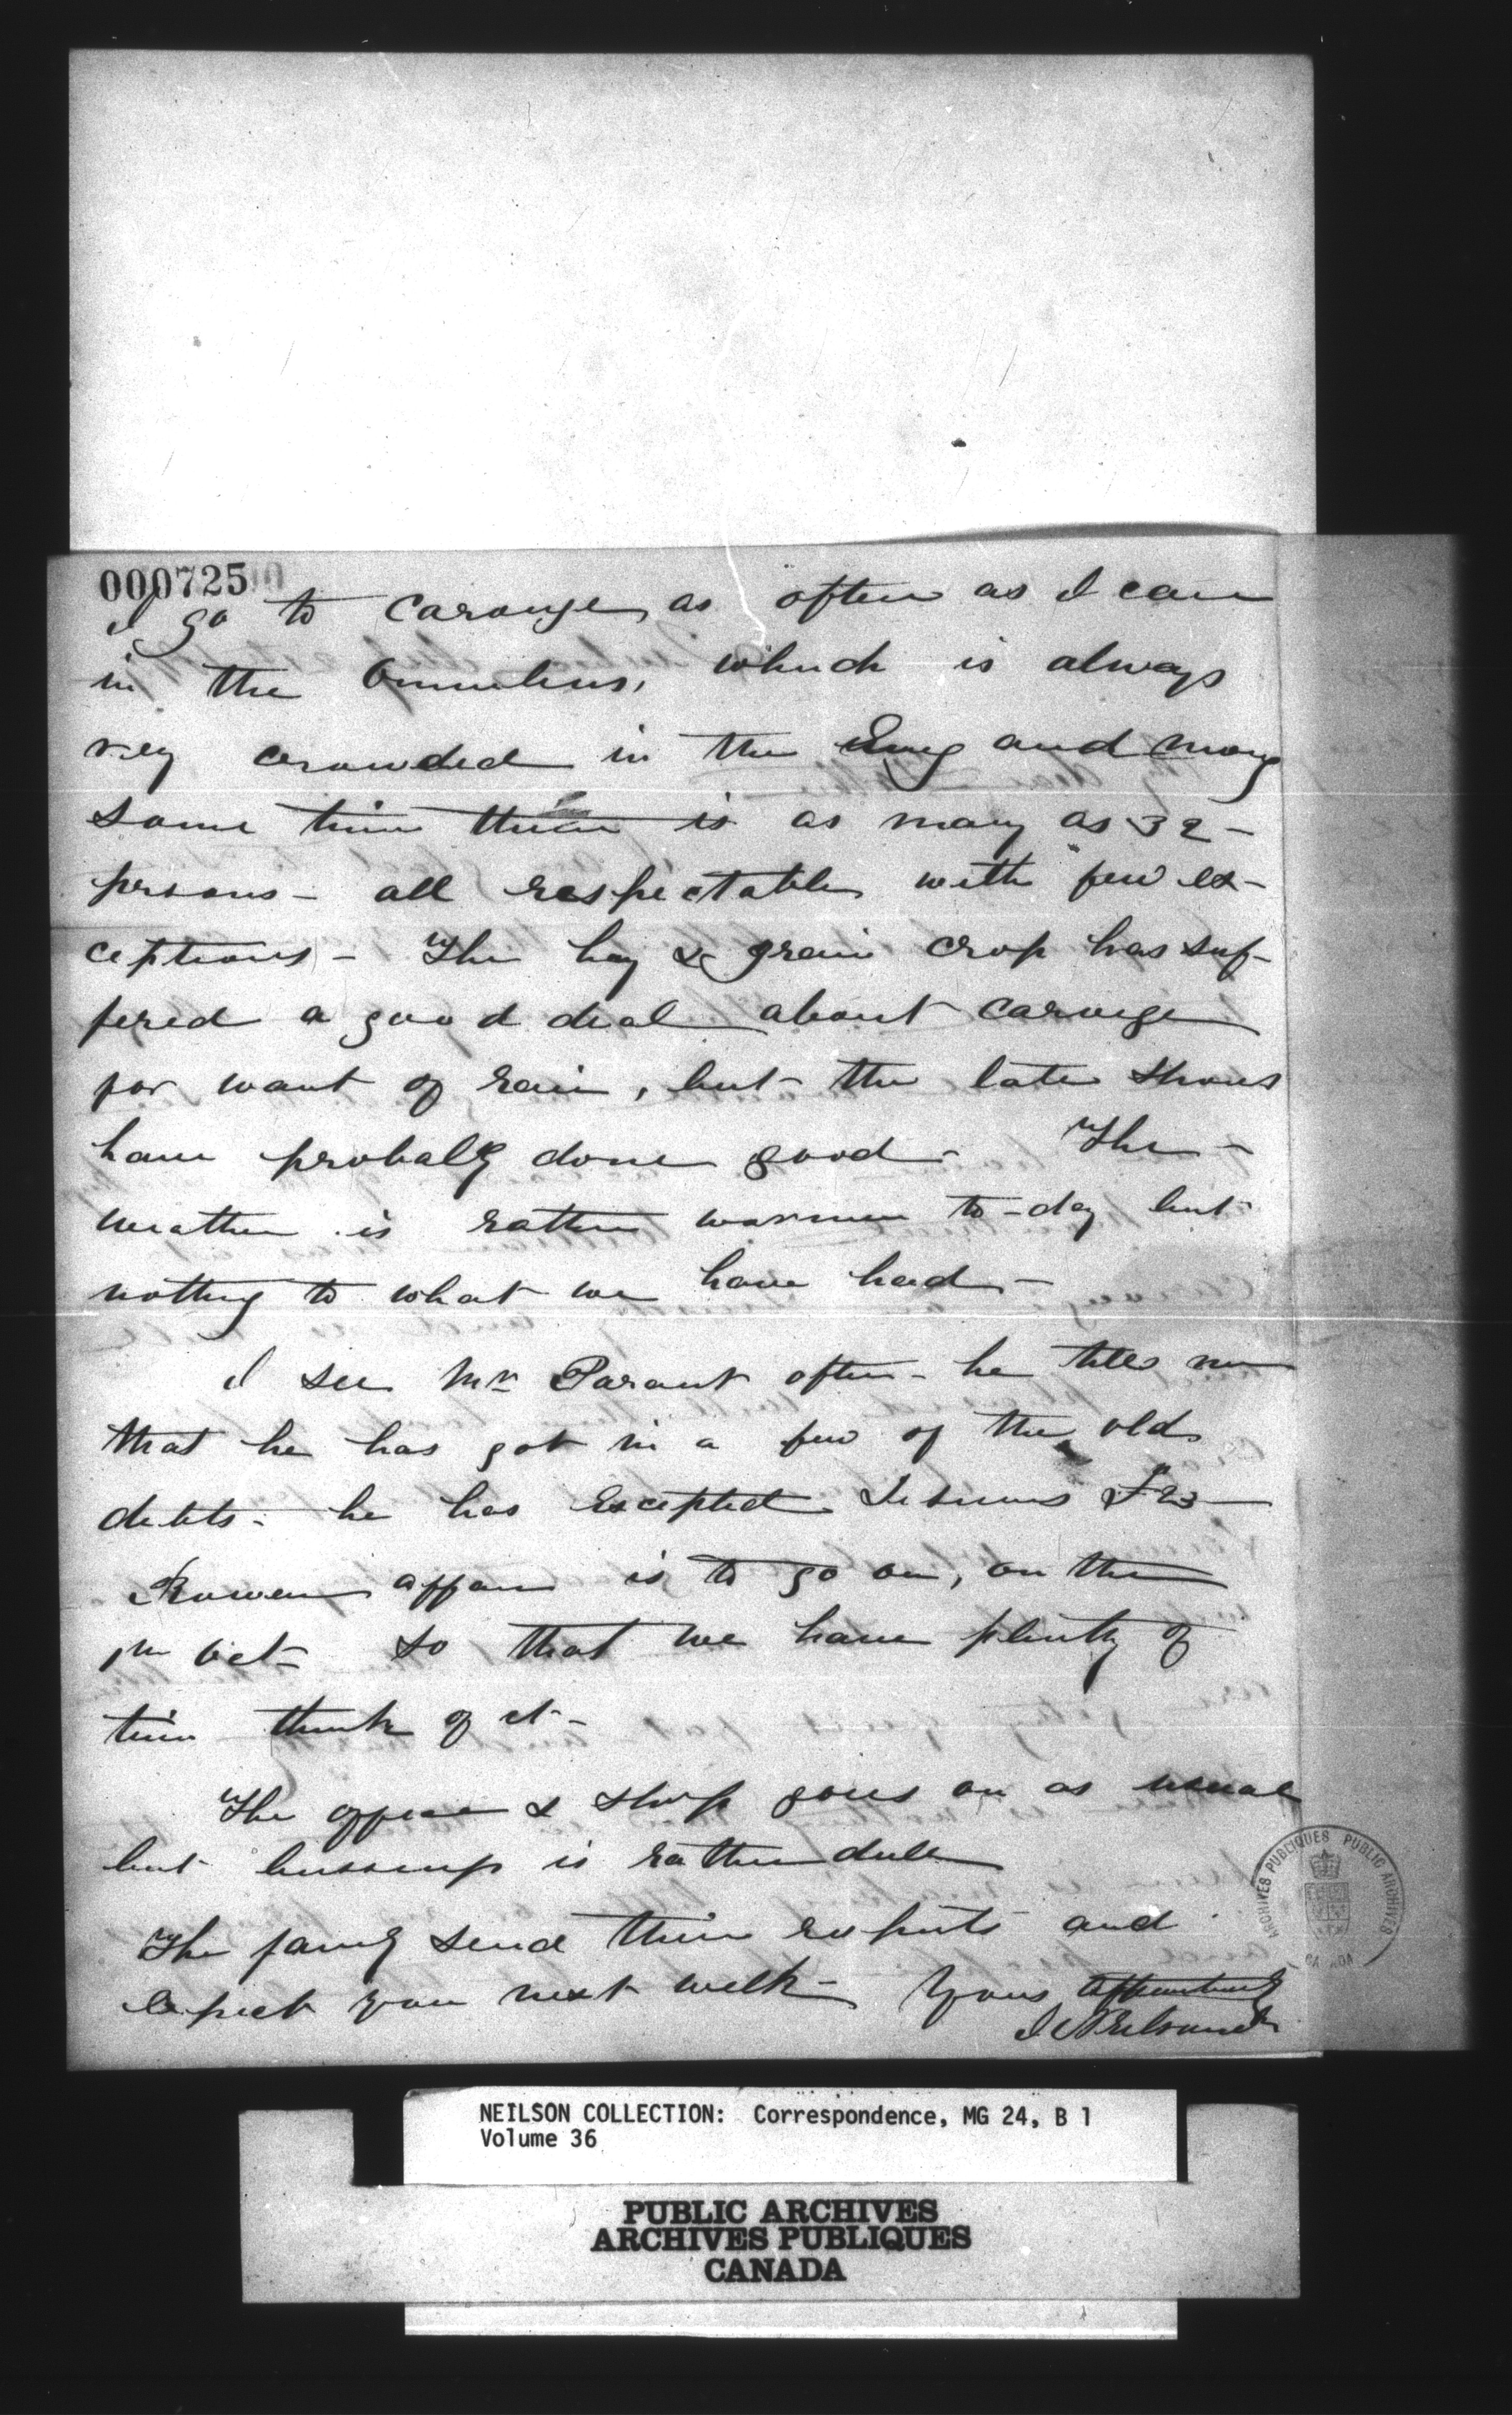 000725
I go to Carouge, as often as I can
in the Omnibus, which is always
very crowded in the Eving and Morng
some time there is as many as 32 -
persons - all respectable with few ex-
ceptions - The hay & grain crop has suf-
fered a good deal about Carouge
for want of rain, but the late
have probably done good - The -
weather is rather warmer to-day but
nothing to what we have had -
I see Mr Parant often - he tells me
that he has got in a few of the old
debts. he has excepted £23 -
affair is to go on, on the
1st Oct so that we have plenty of
time think of it -
The office & shop goes on as usual
but bussiness is rather dull
The family send their respects and
expect you next week - Yours affectionately
I Neilson
ARCHIVES PUBLIQUES PUBLIC ARCHIVES
CANADA
NEILSON COLLECTION: Correspondence, MG 24, B 1
Volume 36
PUBLIC ARCHIVES
ARCHIVES PUBLIQUES
CANADA